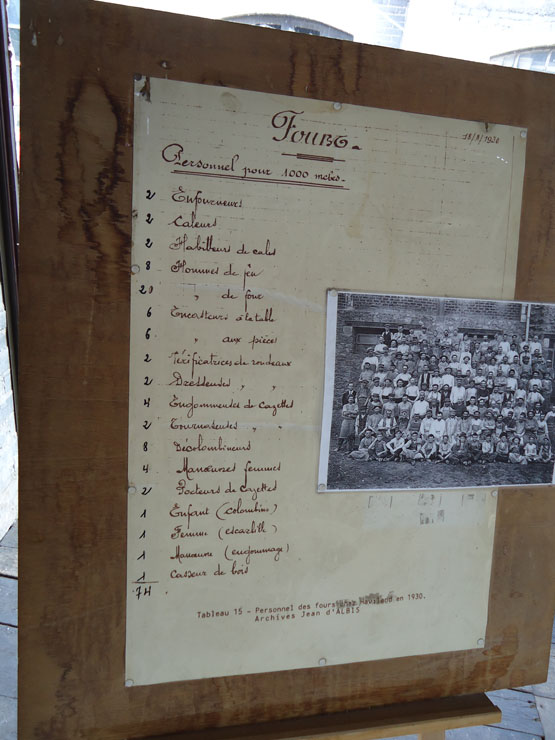 Fours
18/8/1930
Personnel pour 1000 mcbes.
2 Enfourneurs
2 Caleurs
2 Habilleurs de cales
8 Hommes de feu
20 " de four
6 Encasteurs à la table
6 " aux pièces
2 Vérificatrices de rondeaux
2 Dresseuses " "
4 Engommeuses de Cazettes
2 Tournasseuses " "
8 Décolombineurs
4 Manœuvres femmes
2 Porteurs de Cazettes
1 Enfant (colombins)
1 Femme (escarbille)
1 Manœuvre (engommage)
1 Casseur de bois
74
Tableau 15 - Personnel des fours chez Haviland en 1930.
Archives Jean d'ALBIS